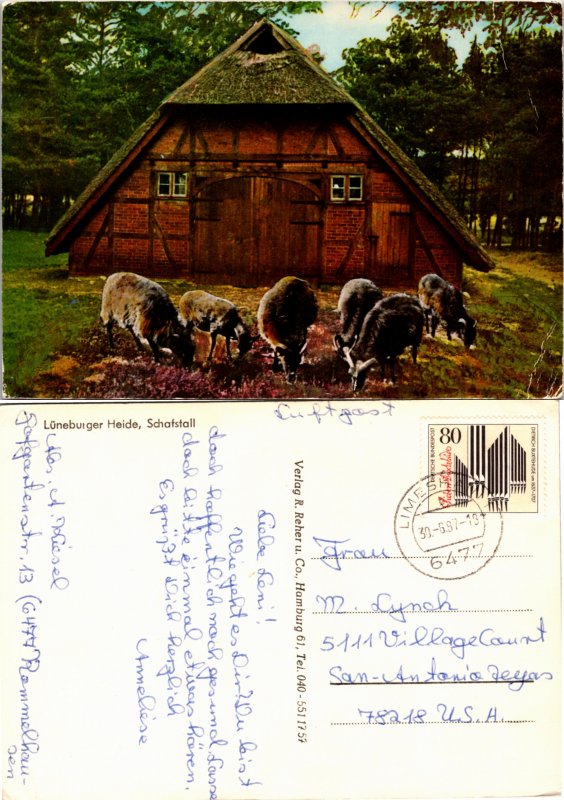 Lüneburger Heide, Schafstall
Luftpost
80
DEUTSCHE BUNDESPOST
DIETRICH BUXTEHUDE um 1637-1707
30.-6.87-18
6477
Verlag R. Reher u. Co., Hamburg 61, Tel. 040 - 551 17 57
Liebe Leni!
Wie geht es Dir? Du bist
doch hoffentlich noch gesund. Lasse
doch bitte einmal etwas hören.
Es grüßt Dich herzlich
Anneliese
Abs. A. Kiesel
Gartenstr. 13 (6477 Rommelhau-
sen
Frau
M. Lynch
5111 Village Court
San-Antonio Texas
78218 U.S.A.